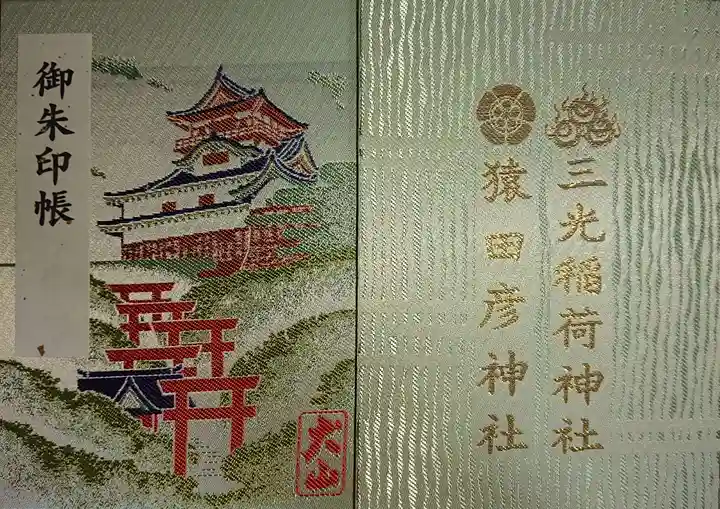 御朱印帳
犬山
三光稲荷神社
猿田彦神社